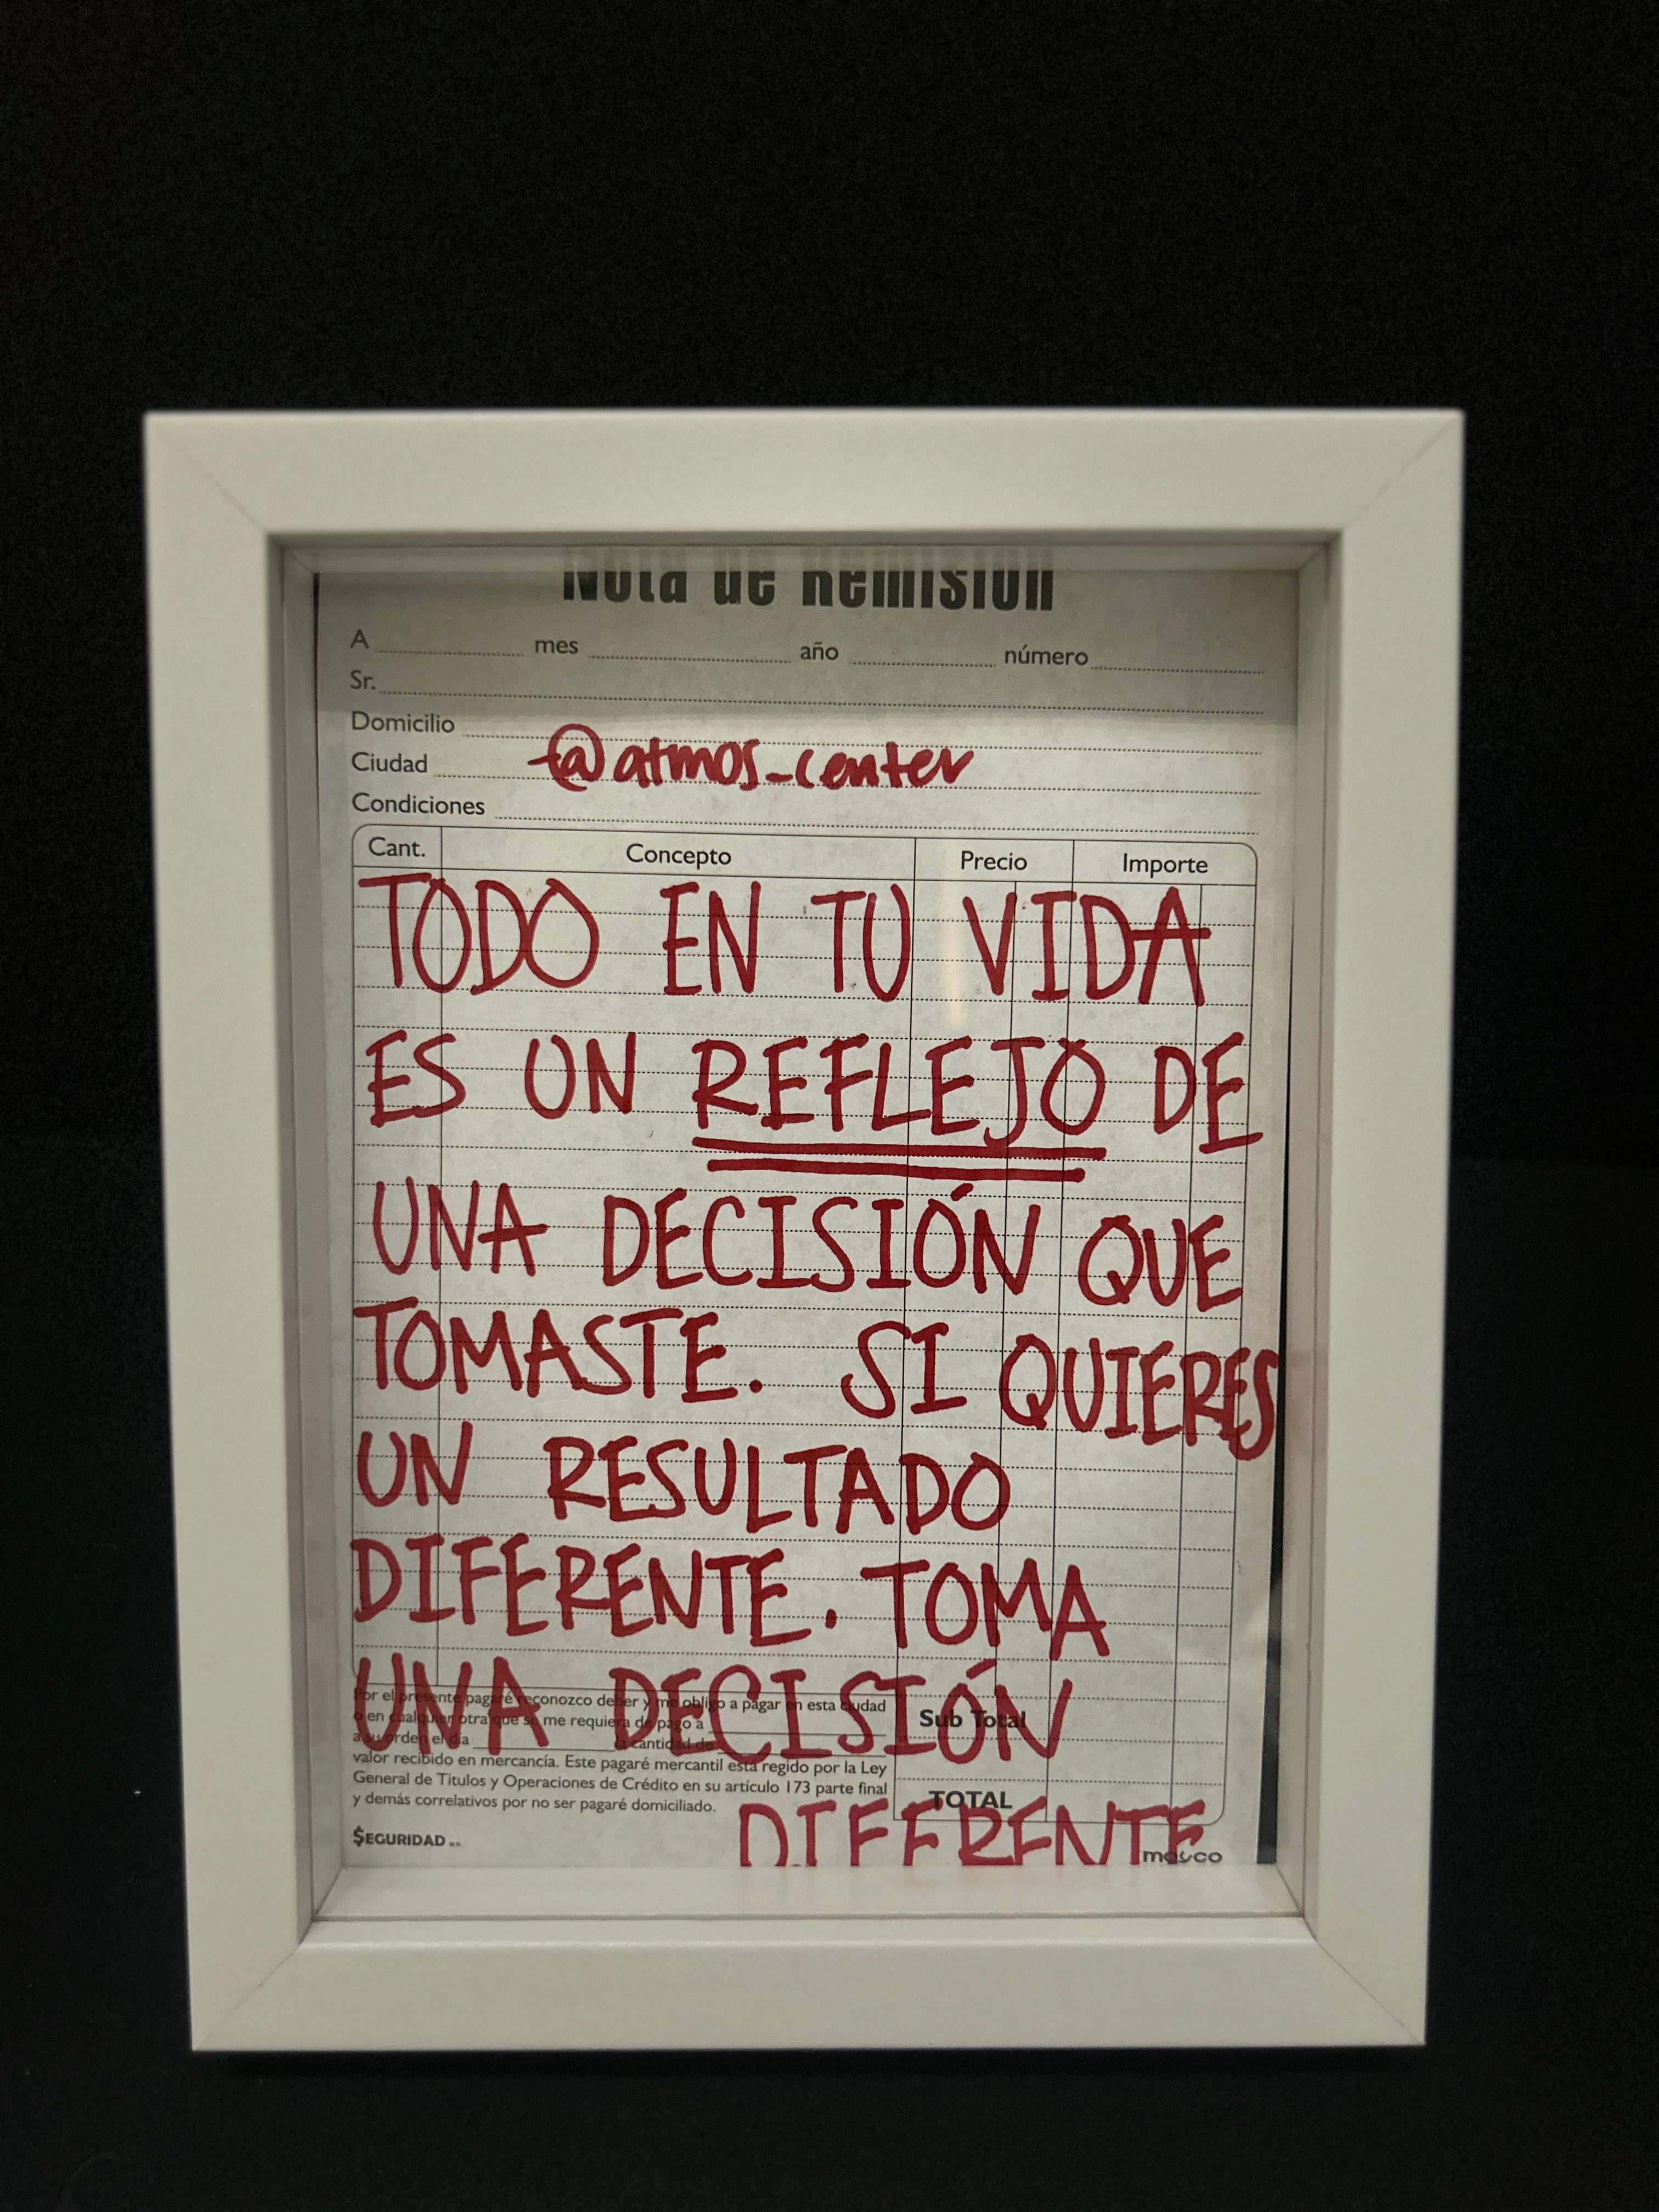 Nota de Remisión
A mes año número
Sr.
Domicilio
Ciudad @atmos_center
Condiciones
Cant. Concepto Precio Importe
TODO EN TU VIDA
ES UN REFLEJO DE
UNA DECISIÓN QUE
TOMASTE. SI QUIERES
UN RESULTADO
DIFERENTE. TOMA
UNA DECISIÓN
DIFERENTE
Por el presente pagaré reconozco deber y me obligo a pagar en esta ciudad
o en cualquier otra que se me requiera de pago a
a su orden el día la cantidad de
valor recibido en mercancía. Este pagaré mercantil está regido por la Ley
General de Títulos y Operaciones de Crédito en su artículo 173 parte final
y demás correlativos por no ser pagaré domiciliado.
Sub Total
TOTAL
SEGURIDAD M.R.